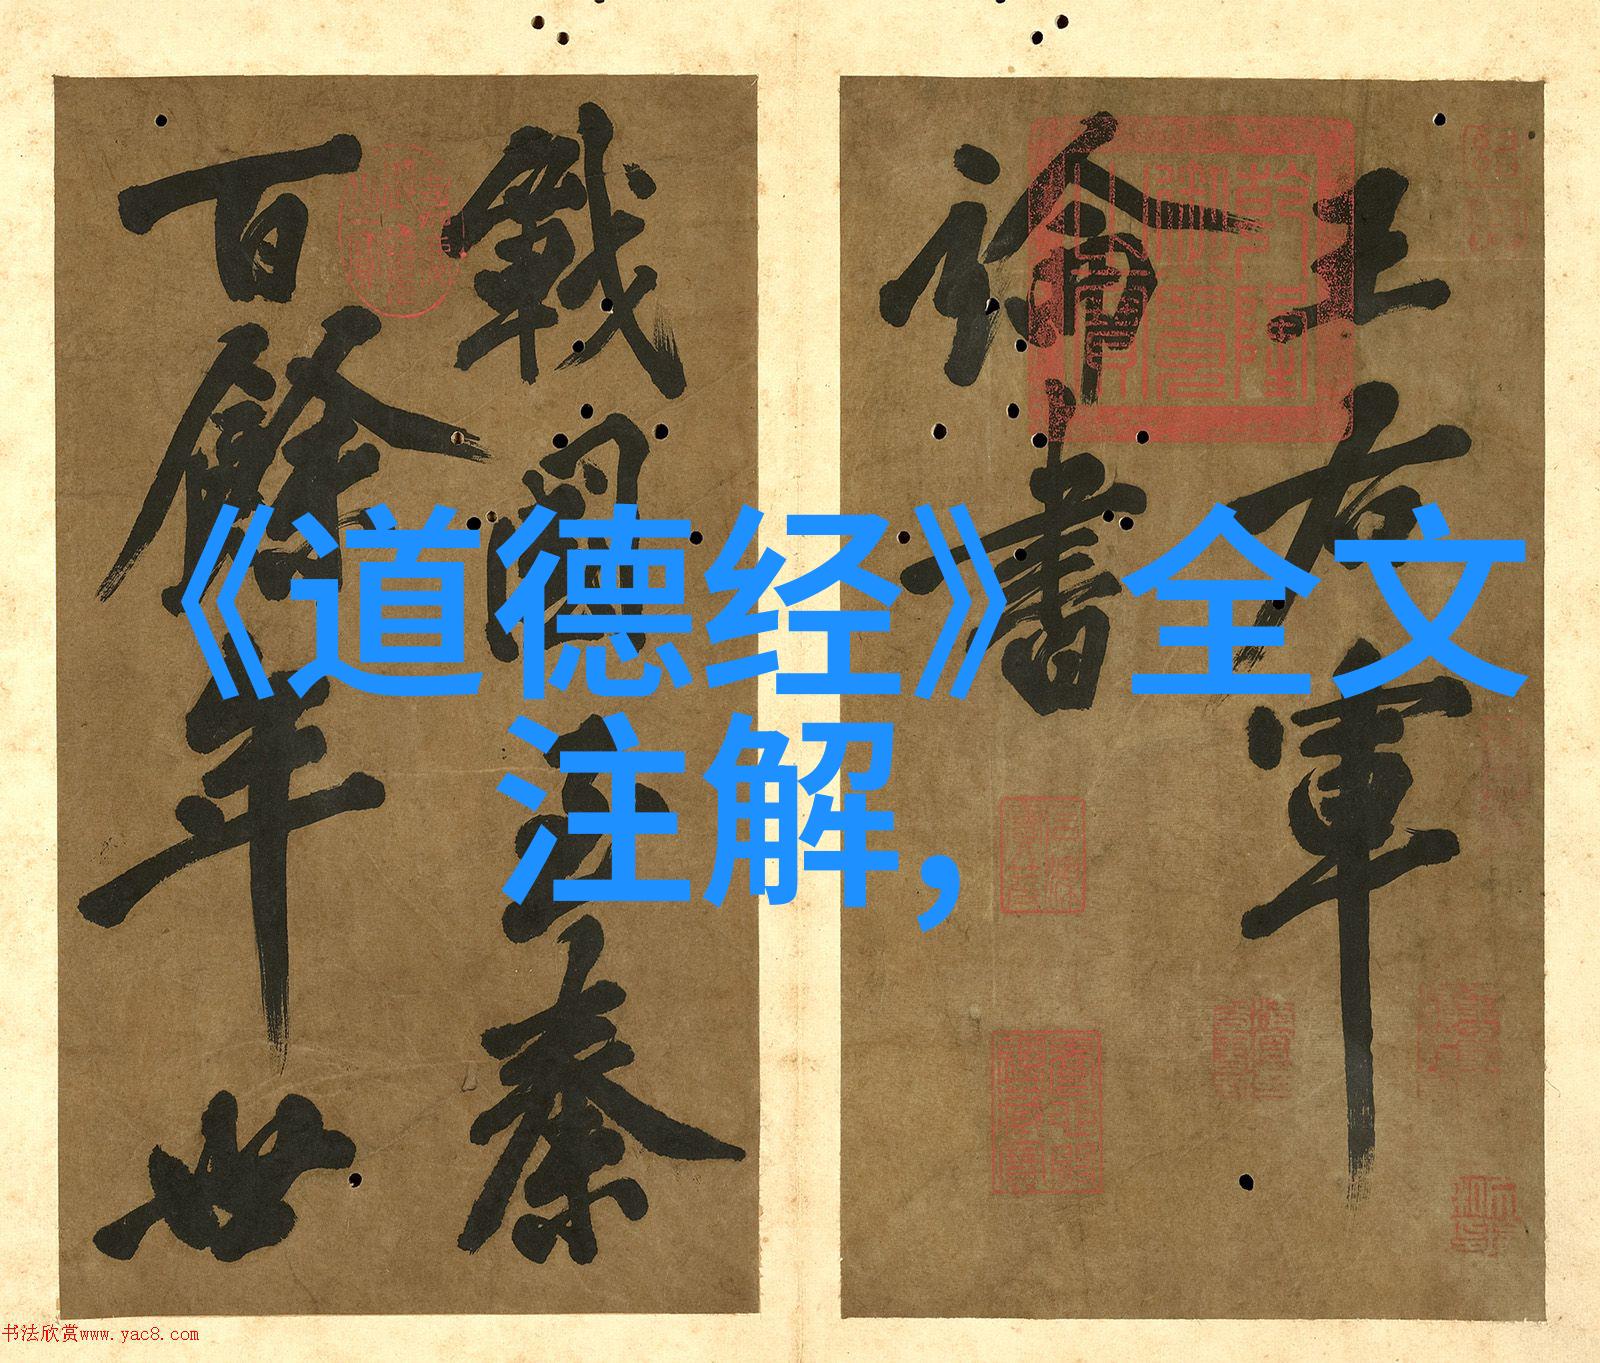 《道德经》全文
注解,
王右軍
論書
戰國至秦
百餘年世
乾隆御覽之寶
书法欣赏www.yac8.com